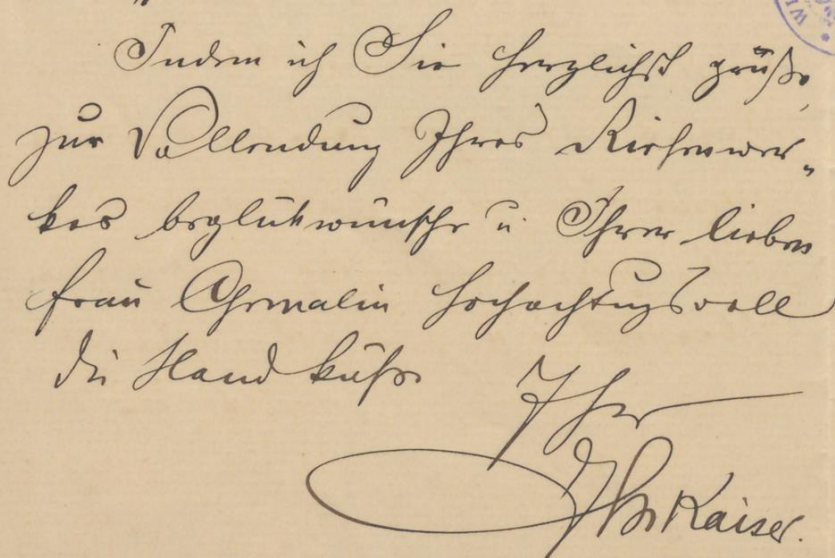 Indem ich Sie herzlichst grüße,
zur Vollendung Ihres Riesenwer-
kes beglükwünsche u. Ihrer lieben
Frau Gemalin hochachtungsvoll
die Hand küsse
Ihr
Kaiser.